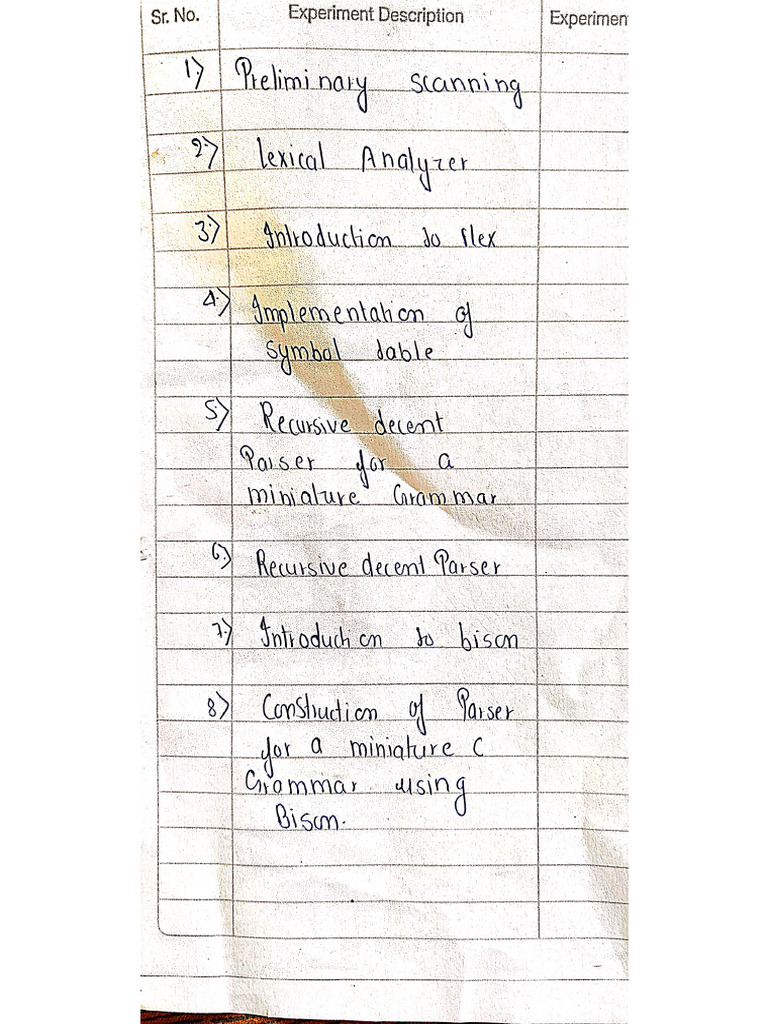 Sr. No. Experiment Description Experimen
1) Preliminary scanning
2) Lexical Analyzer
3) Introduction to flex
4) Implementation of
symbol table
5) Recursive decent
Parser for a
miniature Grammar
6) Recursive decent Parser
7) Introduction to bison
8) Construction of Parser
for a miniature C
Grammar using
Bison.